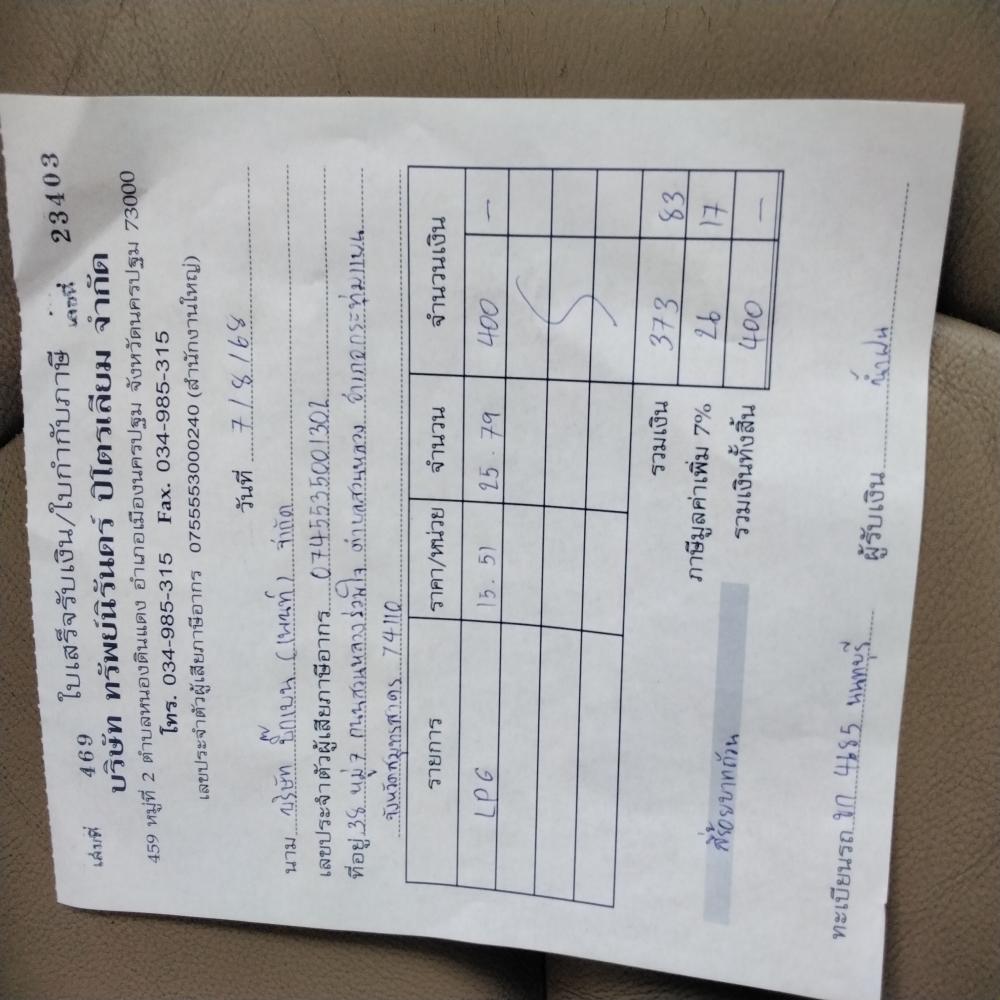 เล่มที่ 469 ใบเสร็จรับเงิน/ใบกำกับภาษี เลขที่ 23403
บริษัท ทรัพย์นิรันดร์ ปิโตรเลียม จำกัด
459 หมู่ที่ 2 ตำบลหนองดินแดง อำเภอเมืองนครปฐม จังหวัดนครปฐม 73000
โทร. 034-985-315 Fax. 034-985-315
เลขประจำตัวผู้เสียภาษีอากร 0755553000240 (สำนักงานใหญ่)
วันที่ 7/8/68
นาม บริษัท บิ๊กเบน (เพนท์) จำกัด
เลขประจำตัวผู้เสียภาษีอากร 0745535001302
ที่อยู่ 38 หมู่ 7 ถนนสวนหลวงร่วมใจ ตำบลสวนหลวง อำเภอกระทุ่มแบน
จังหวัดสมุทรสาคร 74110
รายการ ราคา/หน่วย จำนวน จำนวนเงิน
LPG 15.51 25.79 400 -
รวมเงิน 373 83
ภาษีมูลค่าเพิ่ม 7% 26 17
สี่ร้อยบาทถ้วน รวมเงินทั้งสิ้น 400 -
ทะเบียนรถ 4685 นนทบุรี ผู้รับเงิน น้ำฝน